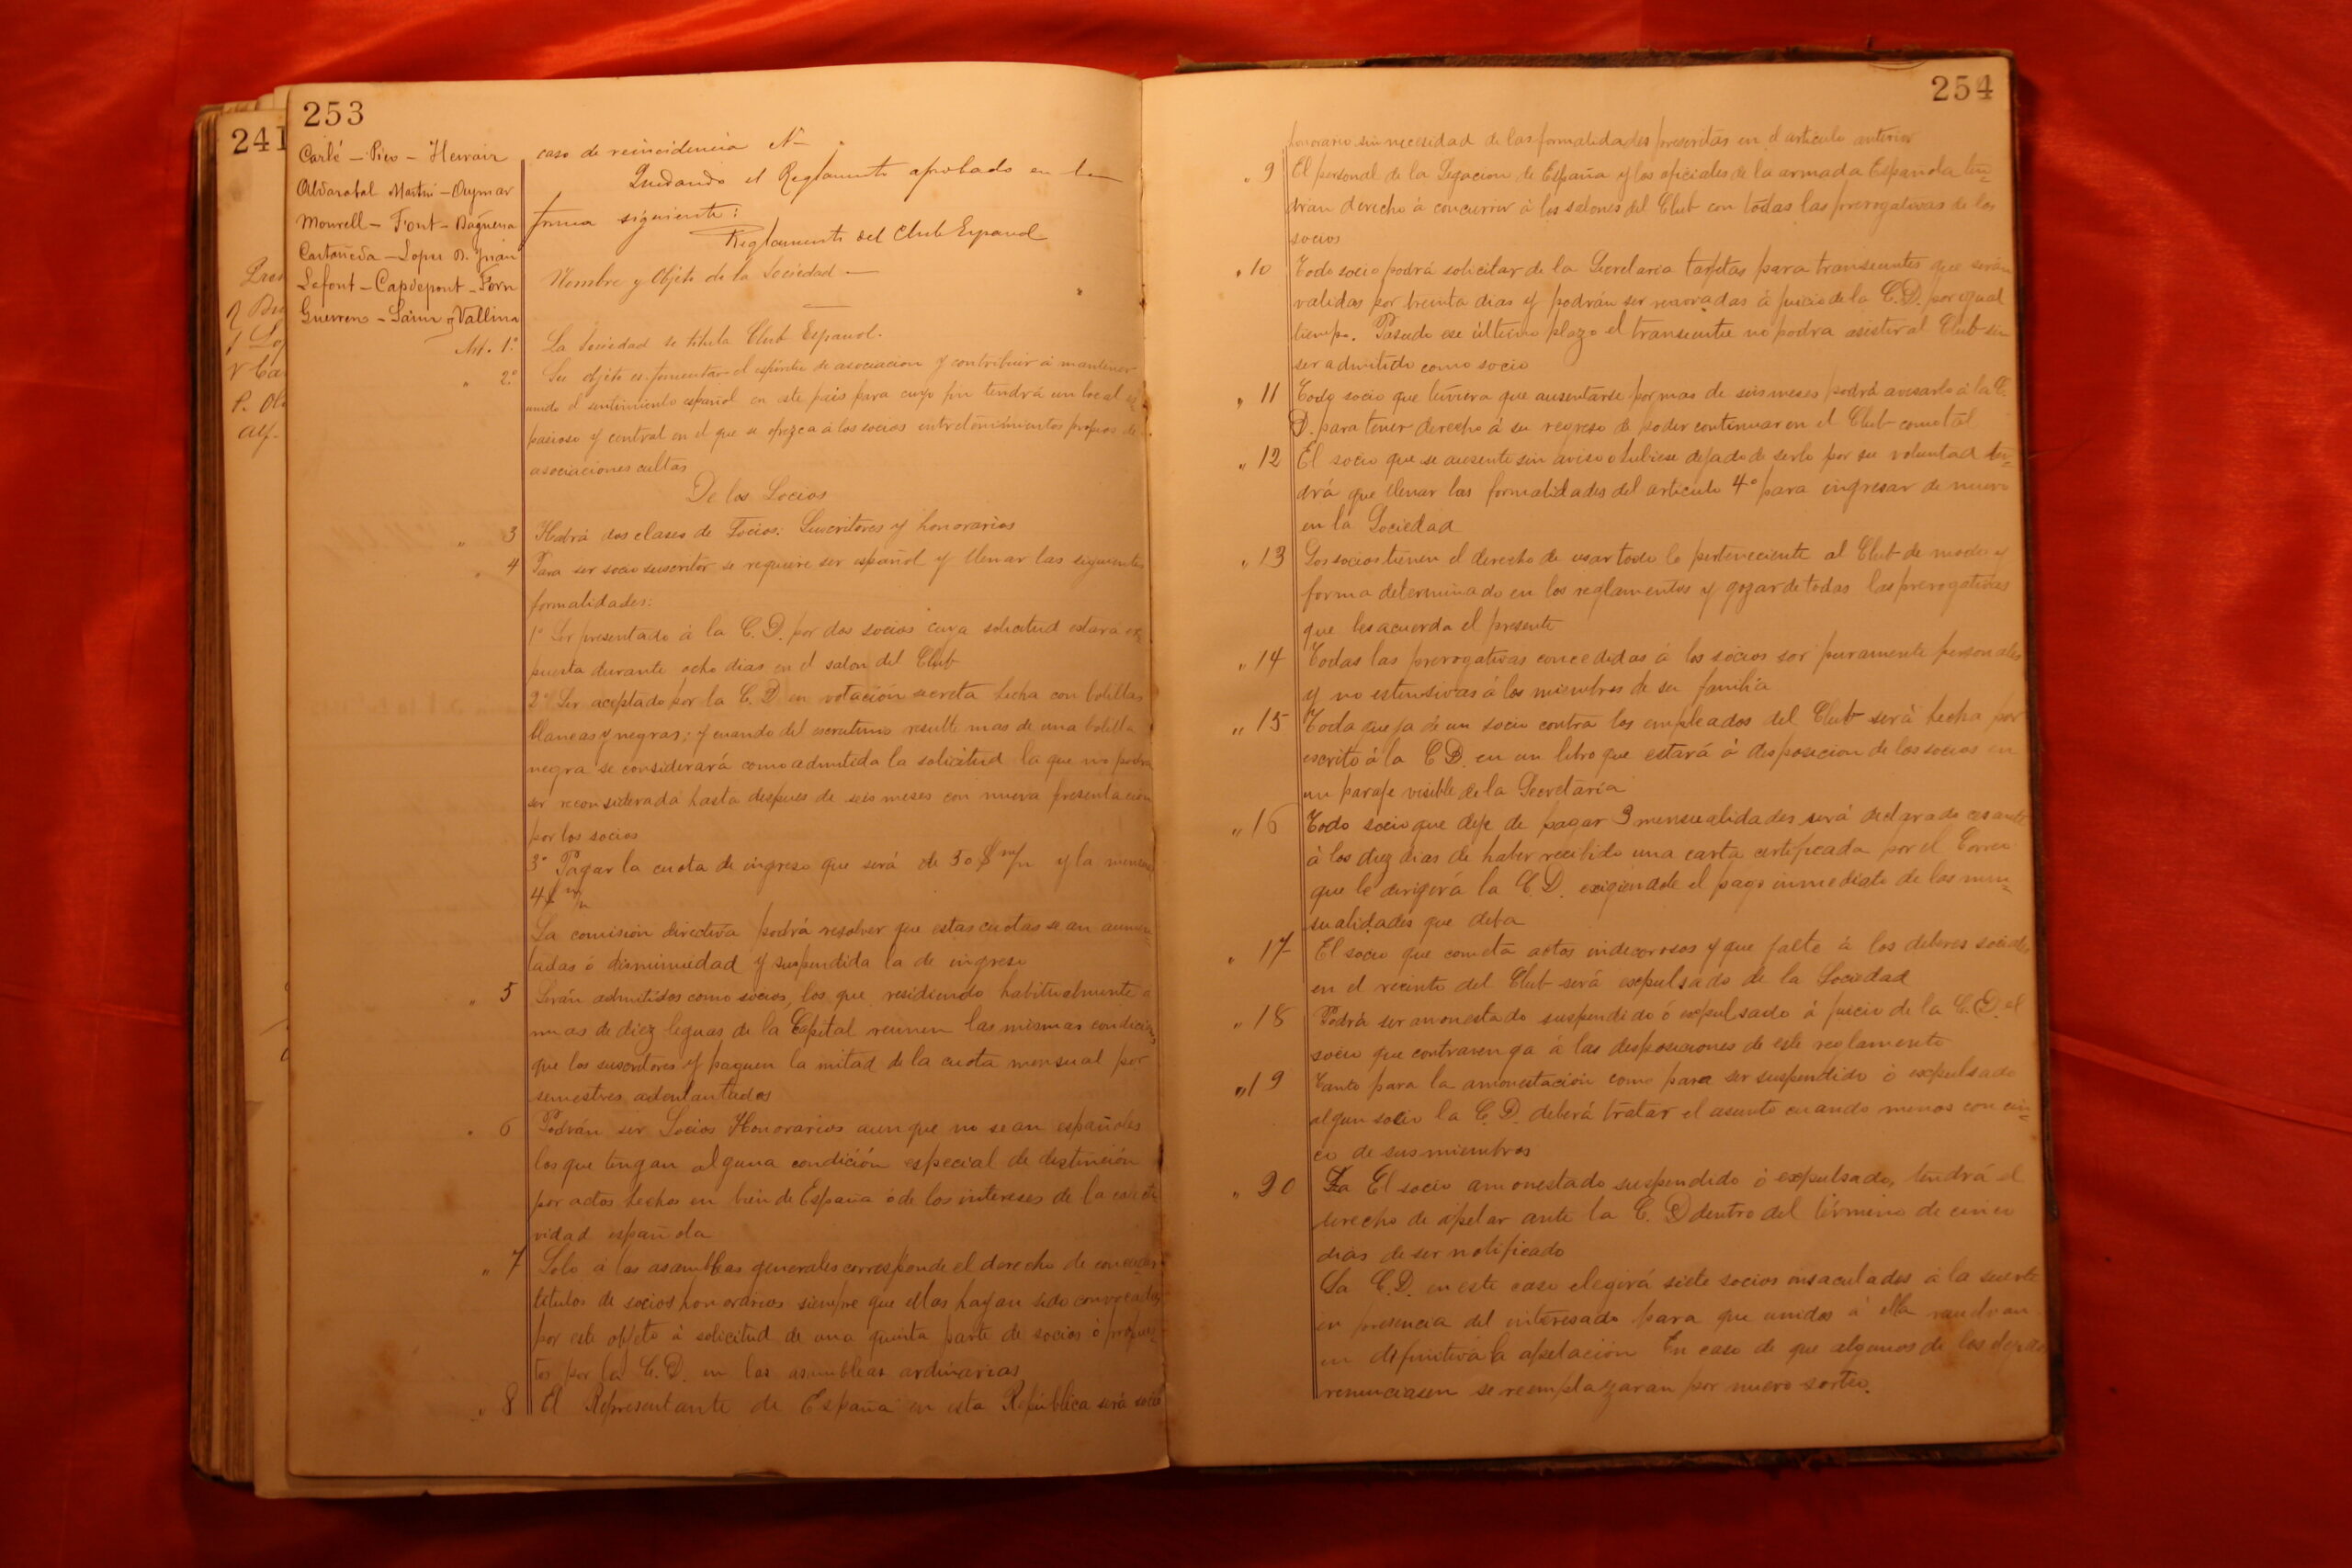 253
241
Carlé - Pico - Herrair
Alvarabal Martri - Aymar
Monrell - Font - Bagueria
Castañeda - Lopez D. Juan
Lafont - Capdepont - Forn
Guerrero - Sainz y Vallina
caso de reincidencia
Quedando el Reglamento aprobado en la
forma siguiente:
Reglamento del Club Español
Nombre y Objeto de la Sociedad
Art. 1.º La Sociedad se titula Club Español.
" 2.º Su objeto es fomentar el espíritu de asociacion y contribuir á mantener
unido el sentimiento español en este pais para cuyo fin tendrá un local es
pacioso y central en el que se ofrezca á los socios entretenimientos propios de
asociaciones cultas
De los Socios
" 3 Habrá dos clases de Socios: Suscritores y honorarios
" 4 Para ser socio suscritor se requiere ser español y llenar las siguientes
formalidades:
1º Ser presentado á la C. D. por dos socios cuya solicitud estara ex
puesta durante ocho dias en el salon del Club
2º Ser aceptado por la C. D. en votación secreta hecha con bolillas
blancas y negras; y cuando del escrutinio resulte mas de una bolilla
negra se considerará como admitida la solicitud la que no podra
ser reconsiderada hasta despues de seis meses con nueva presentacion
por los socios
3º Pagar la cuota de ingreso que será de 50 $ m/n y la mensual
4 $ m/n
La comisión directiva podrá resolver que estas cuotas sean aumen
tadas ó disminuidad y suspendida la de ingreso
" 5 Serán admitidos como socios, los que residiendo habitualmente a
mas de diez leguas de la Capital reunen las mismas condiciones
que los suscritores y paguen la mitad de la cuota mensual por
semestres adentantados
" 6 Podrán ser Socios Honorarios aunque no sean españoles
los que tengan alguna condición especial de distinción
por actos hechos en bien de España ó de los intereses de la colecti
vidad española
" 7 Solo á las asambleas generales corresponde el derecho de conceder
titulos de socios honorarios siempre que ellas hayan sido convocadas
por este objeto á solicitud de una quinta parte de socios ó propues
tos por la C. D. en las asambleas ordinarias
" 8 El Representante de España en esta República será socio
254
honorario sin necesidad de las formalidades prescritas en el articulo anterior
" 9 El personal de la Legacion de España y los oficiales de la armada Española ten=
drian derecho á concurrir á los salones del Club con todas las prerogativas de los
socios
" 10 Todo socio podrá solicitar de la Secretaria tarjetas para transeuntes que serán
validas por treinta dias y podrán ser renovadas á juicio de la C. D. por igual
tiempo. Pasado ese último plazo el transeunte no podra asistir al Club sin
ser admitido como socio
" 11 Todo socio que tuviera que ausentarse por mas de seis meses podrá avisarlo á la C.
D. para tener derecho á su regreso de poder continuar en el Club como tal
" 12 El socio que se ausente sin aviso o hubiese dejado de serlo por su voluntad ten=
drá que llenar las formalidades del articulo 4º para ingresar de nuevo
en la Sociedad
" 13 Los socios tienen el derecho de usar todo lo perteneciente al Club de modo y
forma determinado en los reglamentos y gozar de todas las prerogativas
que les acuerda el presente
" 14 Todas las prerogativas concedidas á los socios sor puramente personales
y no estensivas á los miembros de su familia
" 15 Toda queja de un socio contra los empleados del Club será hecha por
escrito á la C D. en un libro que estará á disposicion de los socios en
un paraje visible de la Secretaria
" 16 Todo socio que deje de pagar 3 mensualidades será declarado cesante
á los diez dias de haber recibido una carta certificada por el Correo
que le dirigirá la C D. exigiendole el pago inmediato de las men=
sualidades que deba
" 17 El socio que cometa actos indecorosos y que falte á los deberes sociales
en el recinto del Club será expulsado de la Sociedad
" 18 Podrá ser amonestado suspendido ó expulsado á juicio de la C. D. el
socio que contravenga á las disposiciones de este reglamento
" 19 Tanto para la amonestación como para ser suspendido ó expulsado
algun socio la C. D. deberá tratar el asunto cuando menos con cin=
co de sus miembros
" 20 La El socio amonestado suspendido ó expulsado, tendrá el
derecho de apelar ante la C. D dentro del término de cinco
dias de ser notificado
La C. D. en este caso elegirá siete socios insaculados á la suerte
en presencia del interesado para que unidos á ella resuelvan
en definitiva la apelación En caso de que algunos de los elegidos
renunciasen se reemplazaran por nuevo sorteo.